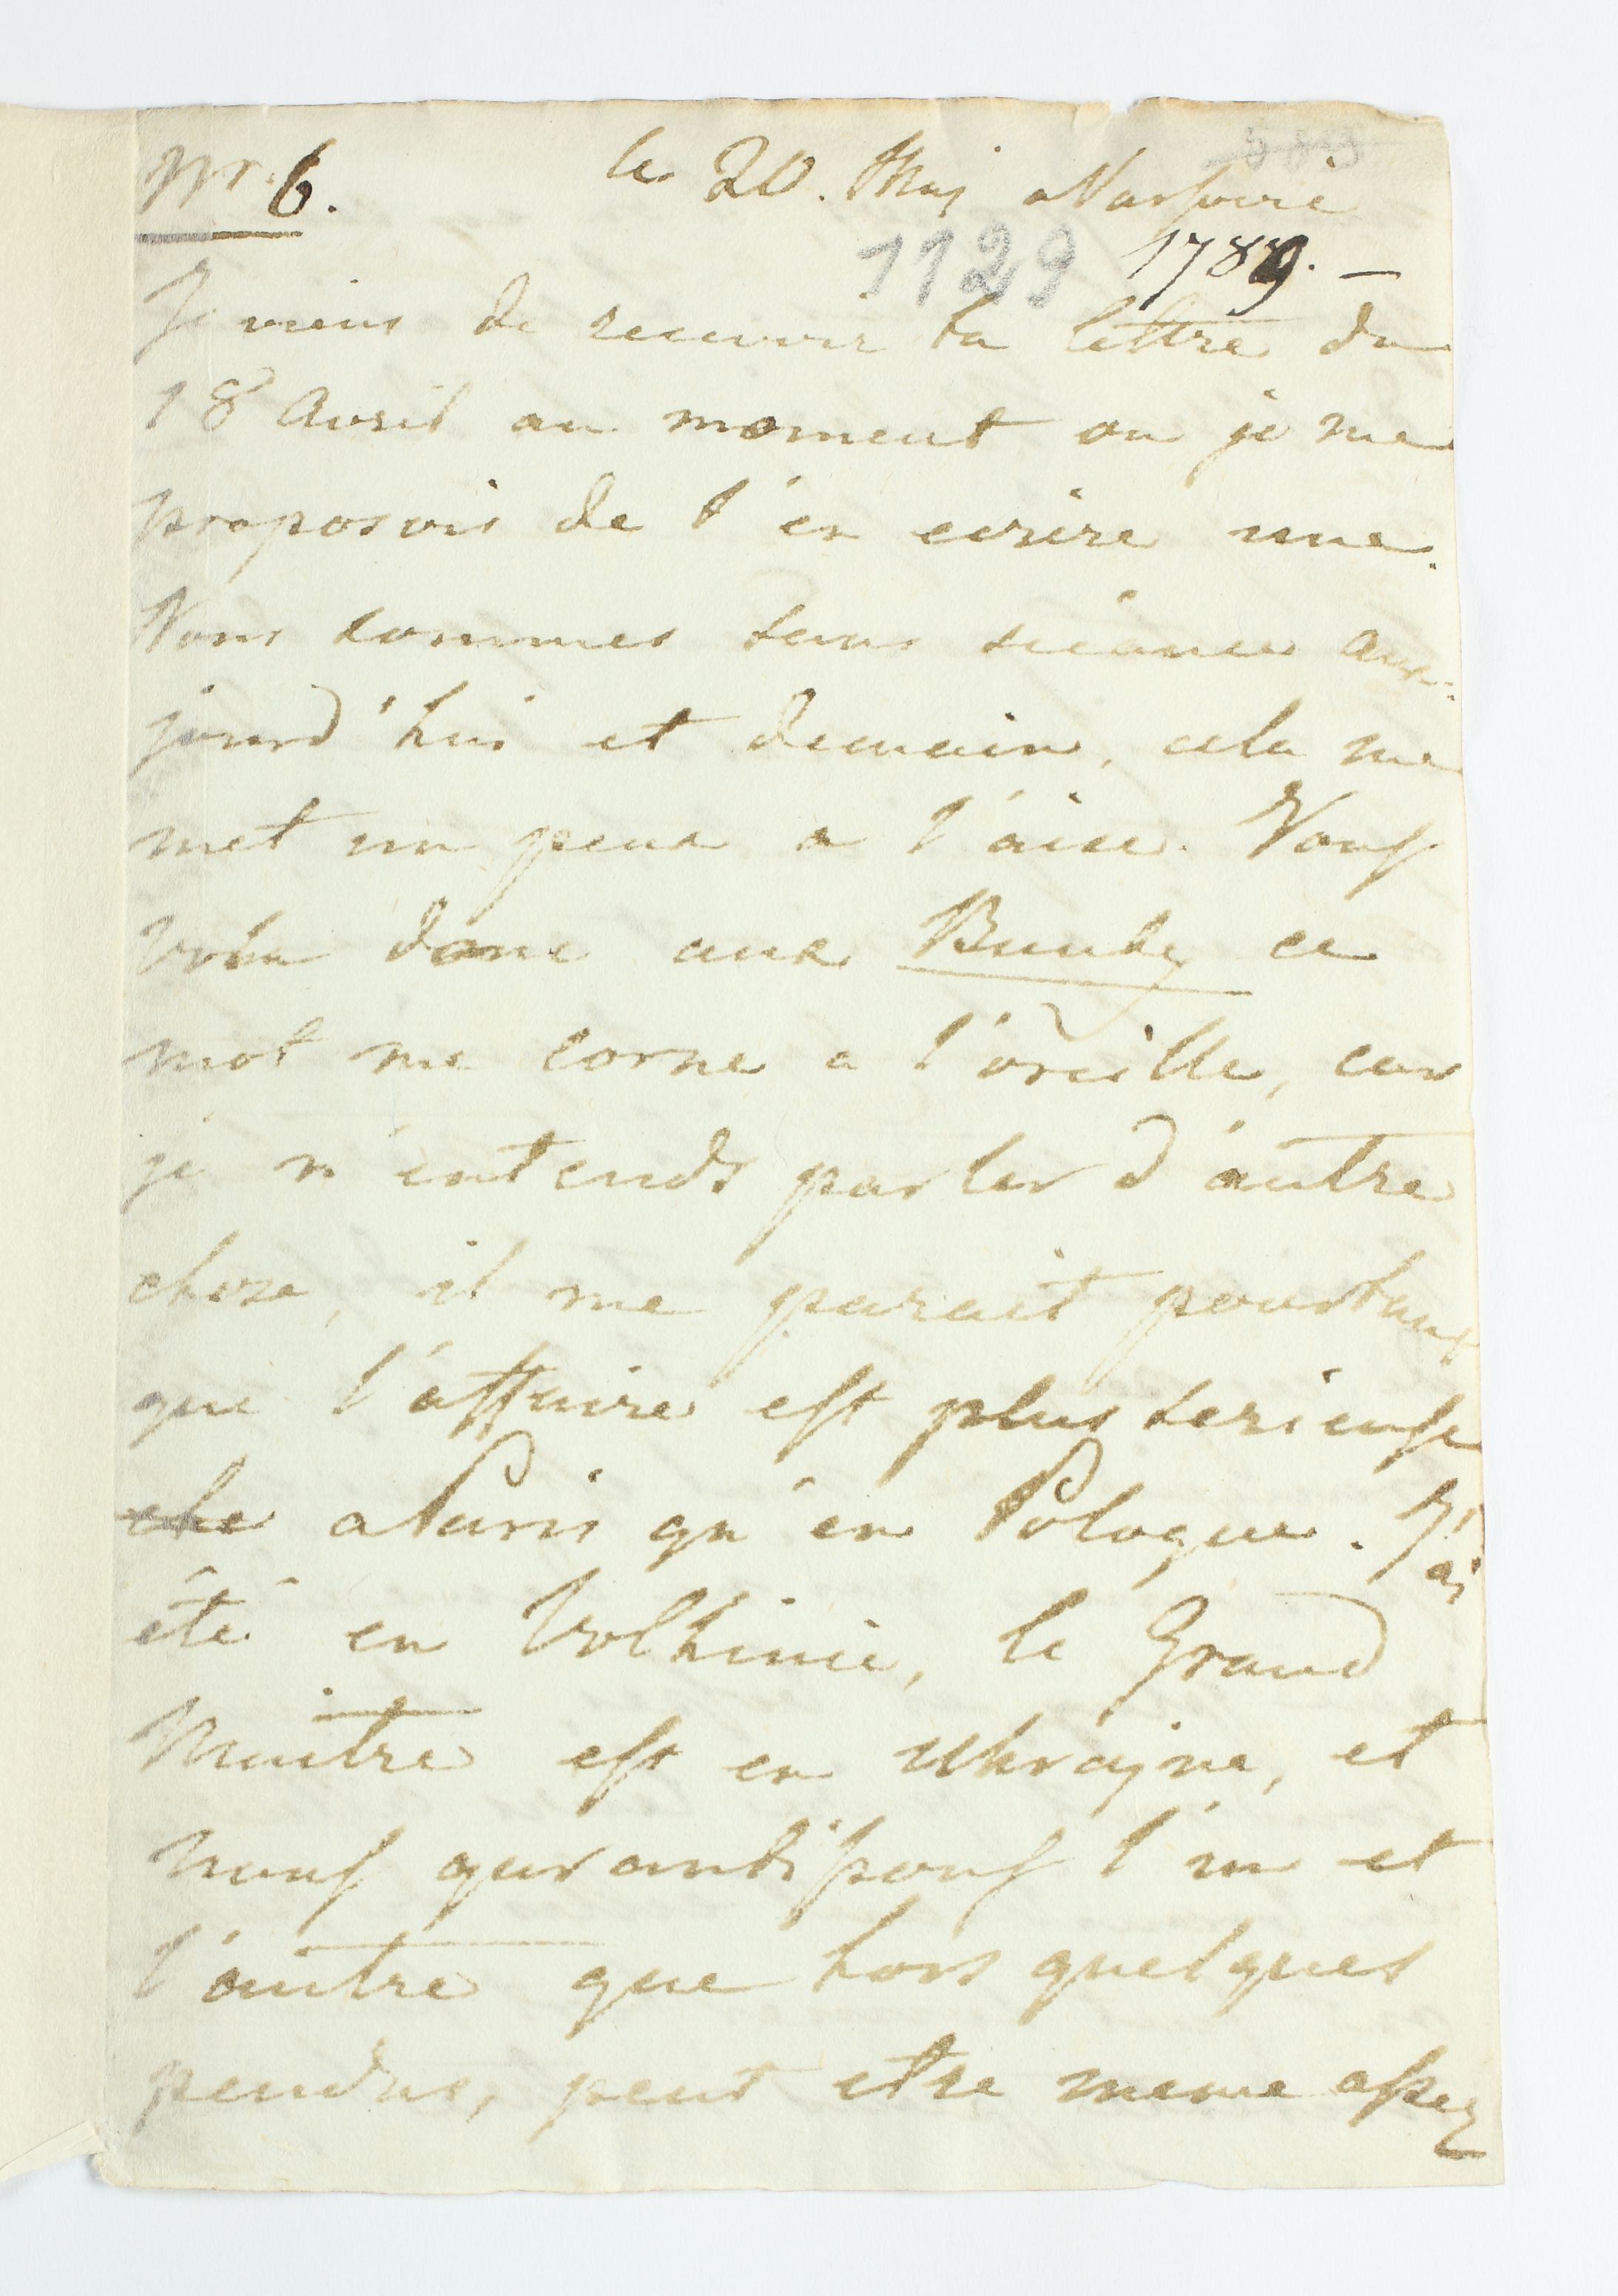 Nr. 6. le 20. Maj a Varsovie
1129 1789. —
Je viens de recevoir ta lettre du
18 Avril au moment ou je me
proposois de t'en ecrire une.
Nous sommes sans séance au-
jourd'hui et demain, cela me
met un peu a l'aise. Nous
voila donc aux Bunty ce
mot me corne a l'oreille, car
je n'entends parler d'autre
chose, il me parait pourtant
que l'affaire est plus serieuse
che a Paris qu'en Pologne. J'ai
été en Volhinie, le Grand
Maitre est en Ukrajne, et
nous garantissons l'un et
l'autre que hors quelques
pendus, peut etre meme assez